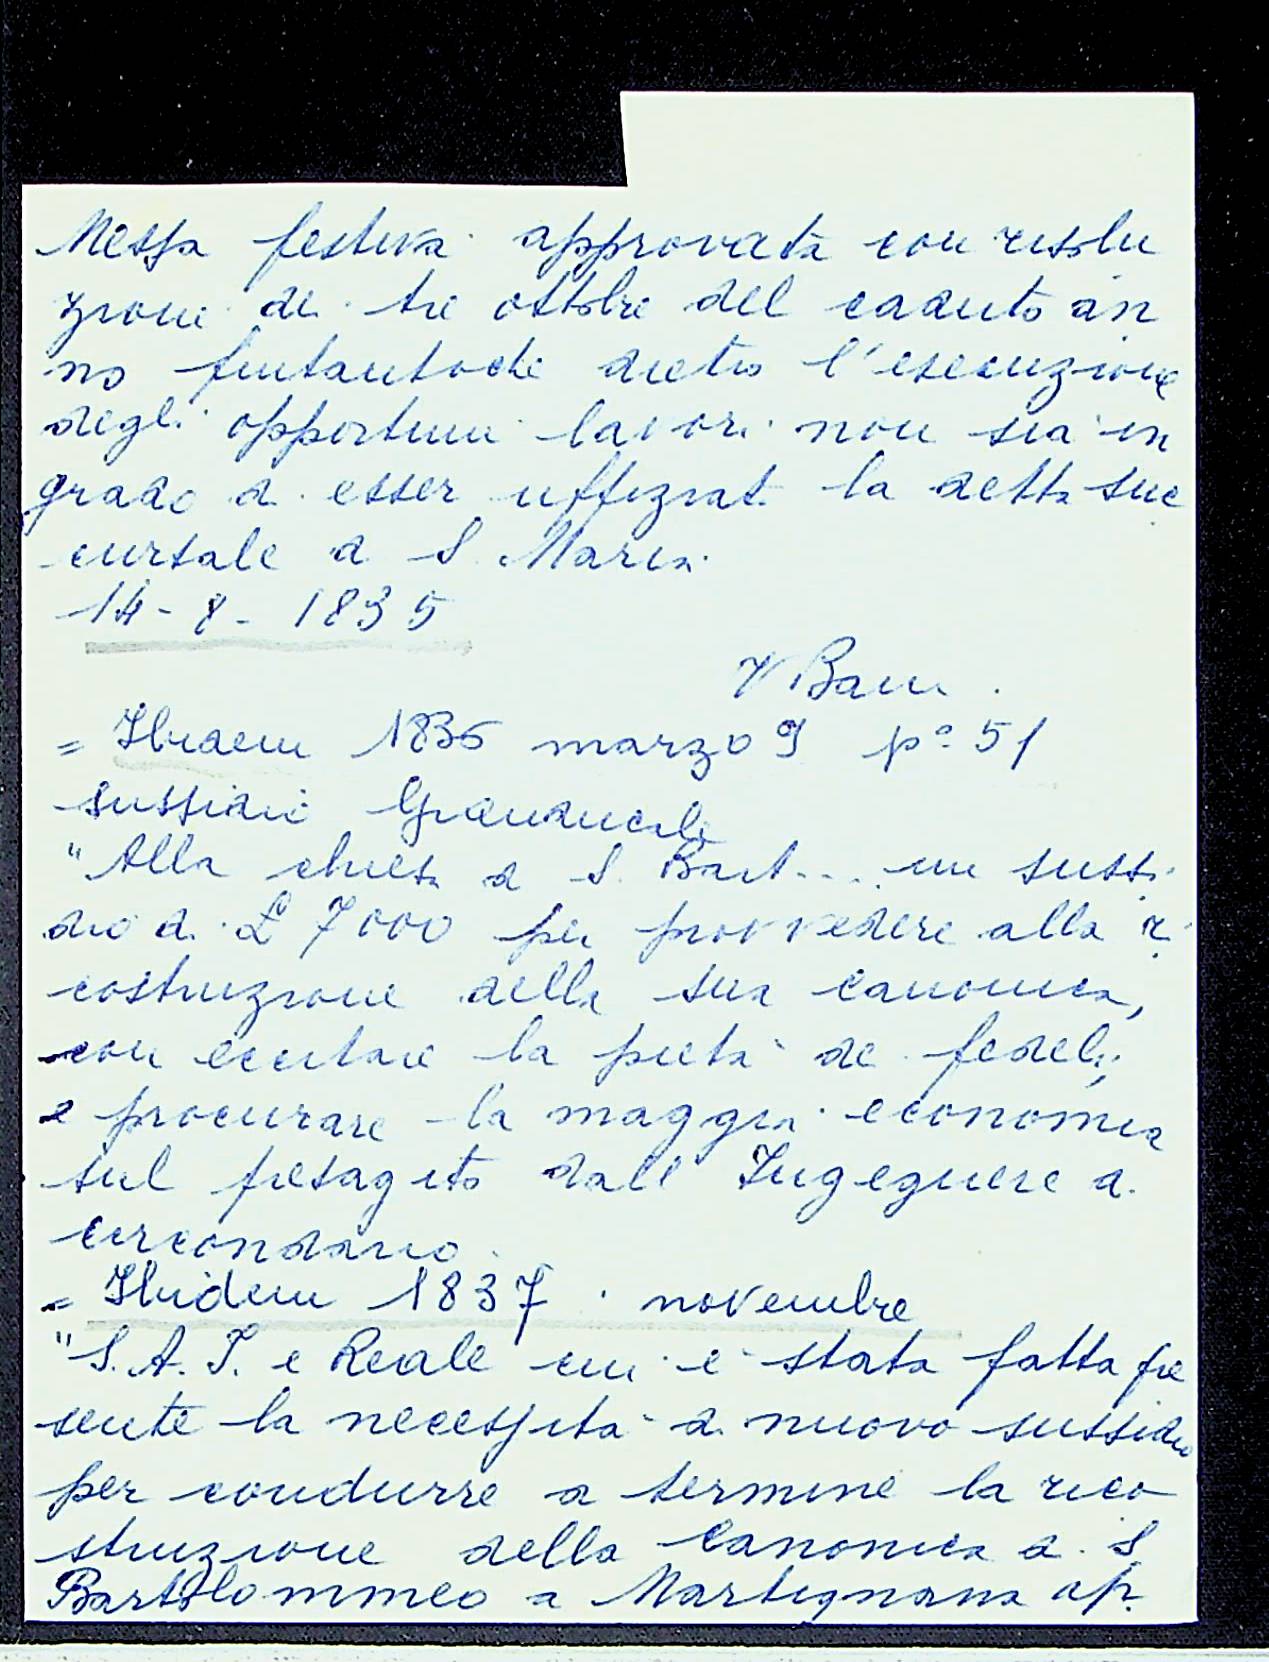 Messa festiva approvata con risolu
zione de tre ottobre del caduto an
no fintantoché dietro l'esecuzione
degli opportuni lavori non sia in
grado di esser uffiziat la detta suc
cursale di S. Maria.
14-8-1835
V Bani.
= Ibidem 1836 marzo 9 pº 51
sussidi Granducali
"Alla chiesa di S. Bart.... un sussi
dio di £ 7000 per provvedere alla ri
costruzione della sua canonica,
con eccitare la pietà de fedeli,
e procurare la maggior economia
sul presagito dall' Ingegnere di
circondario.
= Ibidem 1837 novembre
"S. A. I. e Reale cui è stata fatta pre
sente la necessità di nuovo sussidio
per condurre a termine la rico
struzione della canonica di S.
Bartolommeo a Martignana ap.